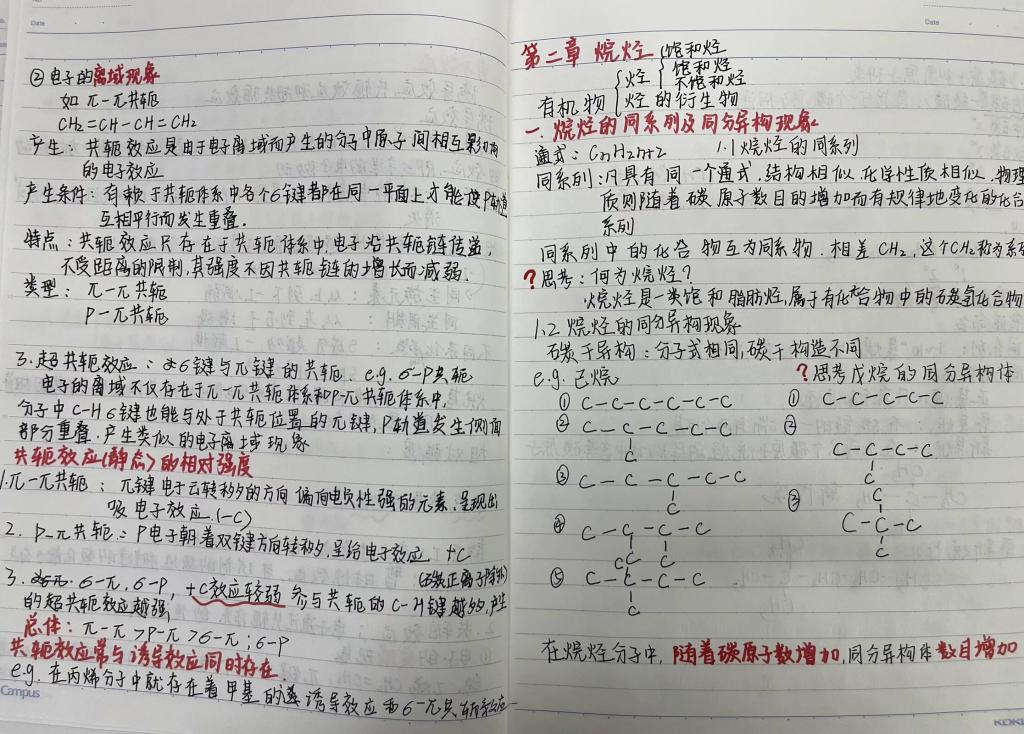 Date
②电子的离域现象
如 π-π共轭
CH₂=CH-CH=CH₂
产生：共轭效应是由于电子离域而产生的分子中原子间相互影响
的电子效应
产生条件：有赖于共轭体系中各个σ键都在同一平面上才能使P轨道
互相平行而发生重叠.
特点：共轭效应只存在于共轭体系中,电子沿共轭链传递,
不受距离的限制,其强度不因共轭链的增长而减弱.
类型：π-π共轭
P-π共轭
3.超共轭效应：σ键与π键的共轭 e.g. σ-P共轭
电子的离域不仅存在于π-π共轭体系和P-π共轭体系中,
分子中C-Hσ键也能与处于共轭位置的π键,P轨道发生侧面
部分重叠.产生类似的电子离域现象
共轭效应(静态)的相对强度
1.π-π共轭：π键电子云转移的方向偏向电负性强的元素.呈现出
吸电子效应.(-C)
2. P-π共轭：P电子朝着双键方向转移,呈给电子效应 +C
(碳正离子除外)
3. σ-π, σ-P, +C效应较弱 参与共轭的C-H键越多,产生
的超共轭效应越强,
总体：π-π>P-π>σ-π;σ-P
共轭效应常与诱导效应同时存在
e.g. 在丙烯分子中就存在着甲基的诱导效应和σ-π共轭效应
Campus
Date
第二章 烷烃 (饱和烃
有机物 { 烃 { 饱和烃
不饱和烃
烃的衍生物
一.烷烃的同系列及同分异构现象
通式：CnH2n+2 1.1烷烃的同系列
同系列：凡具有同一个通式.结构相似.化学性质相似.物理
质则随着碳原子数目的增加而有规律地变化的化合
系列
同系列中的化合物互为同系物.相差CH₂,这个CH₂称为系
?思考：何为烷烃?
烷烃是一类饱和脂肪烃,属于有化合物中的碳氢化合物
1.2.烷烃的同分异构现象
碳干异构：分子式相同,碳干构造不同
e.g. 己烷 ?思考戊烷的同分异构体
① C-C-C-C-C-C ① C-C-C-C-C
② C-C-C-C-C ②
C C-C-C-C
③ C-C-C-C-C C
C ③ C
④ C-C-C-C C-C-C
C C C
⑤ C-C-C-C
C
在烷烃分子中,随着碳原子数增加,同分异构体数目增加